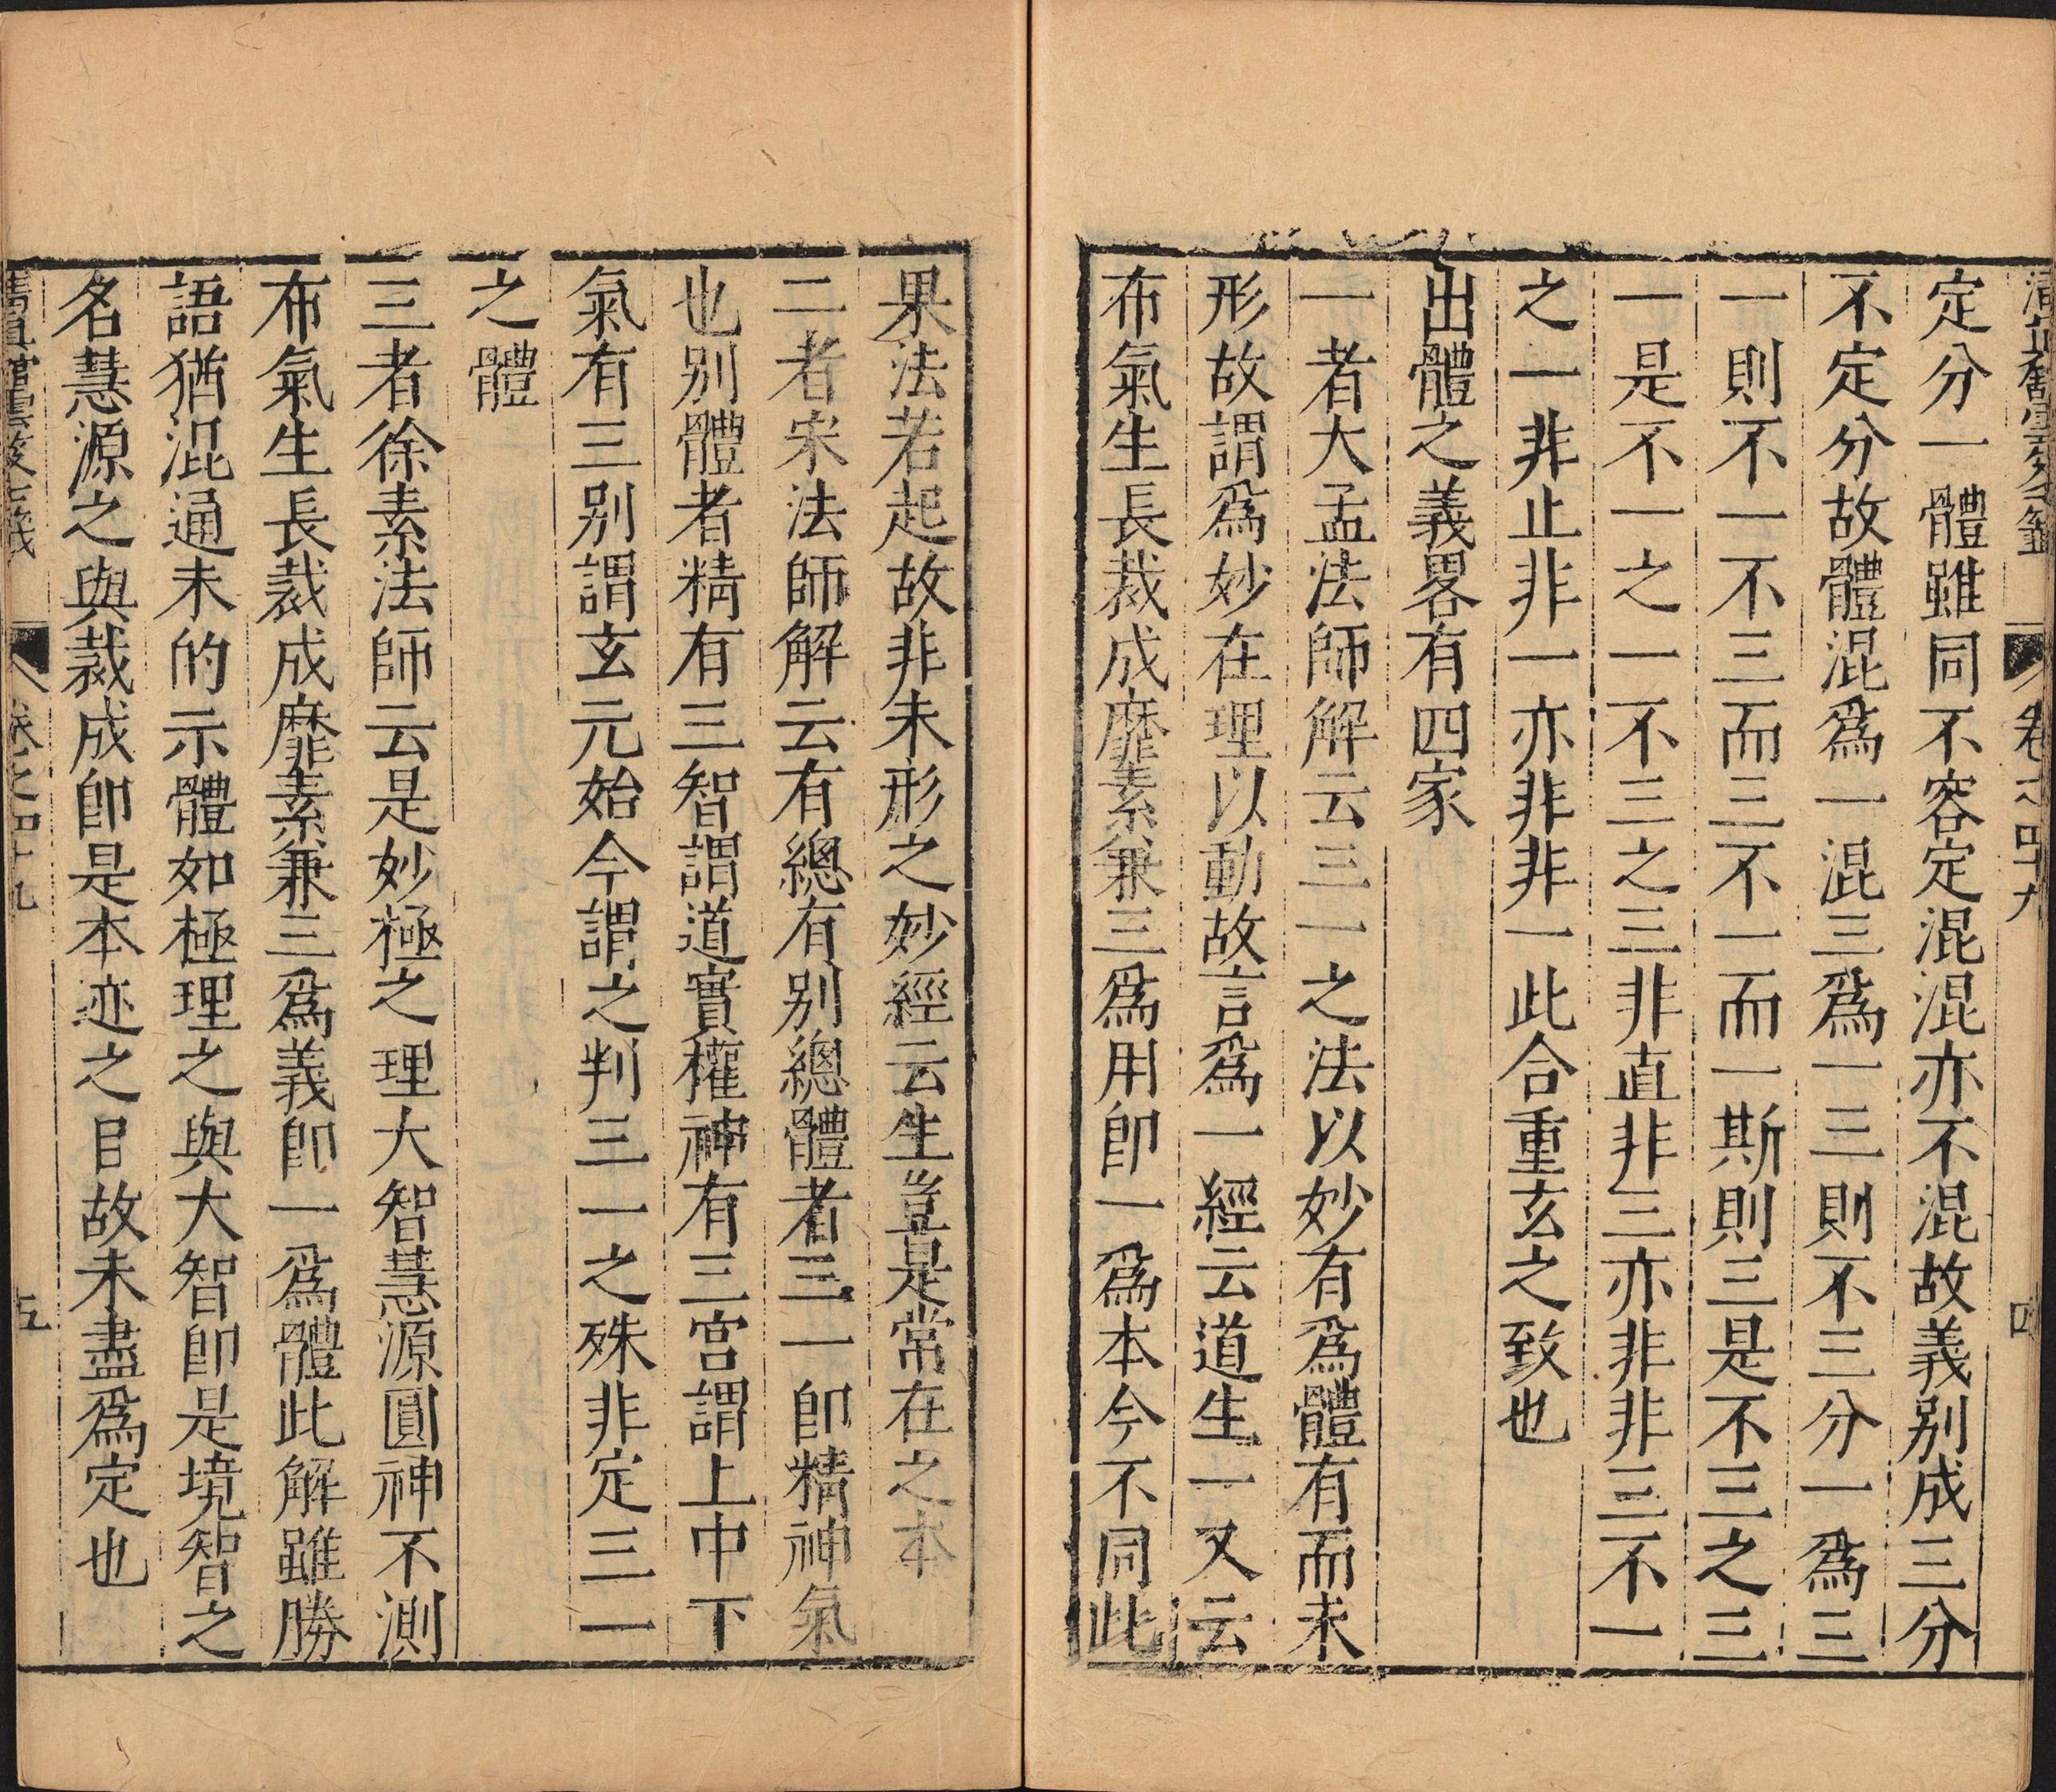 卷之四十九
四
定分一體雖同不容定混混亦不混故義別成三分
不定分故體混爲一混三爲一三則不三分一爲三
一則不一不三而三不一而一斯則三是不三之三
一是不一之一不三之三非直非三亦非非三不一
之一非止非一亦非非一此合重玄之致也
出體之義畧有四家
一者大孟法師解云三一之法以妙有爲體有而未
形故謂爲妙在理以動故言爲一經云道生一又云
布氣生長裁成靡素兼三爲用卽一爲本今不同此
果法若起故非未形之妙經云生豈是常在之本
二者宋法師解云有總有別總體者三一卽精神氣
也別體者精有三智謂道實權神有三宮謂上中下
氣有三別謂玄元始今謂之判三一之殊非定三一
之體
三者徐素法師云是妙極之理大智慧源圓神不測
布氣生長裁成靡素兼三爲義卽一爲體此解雖勝
語猶混通未的示體如極理之與大智卽是境智之
名慧源之與裁成卽是本迹之目故未盡爲定也
卷之四十九
五